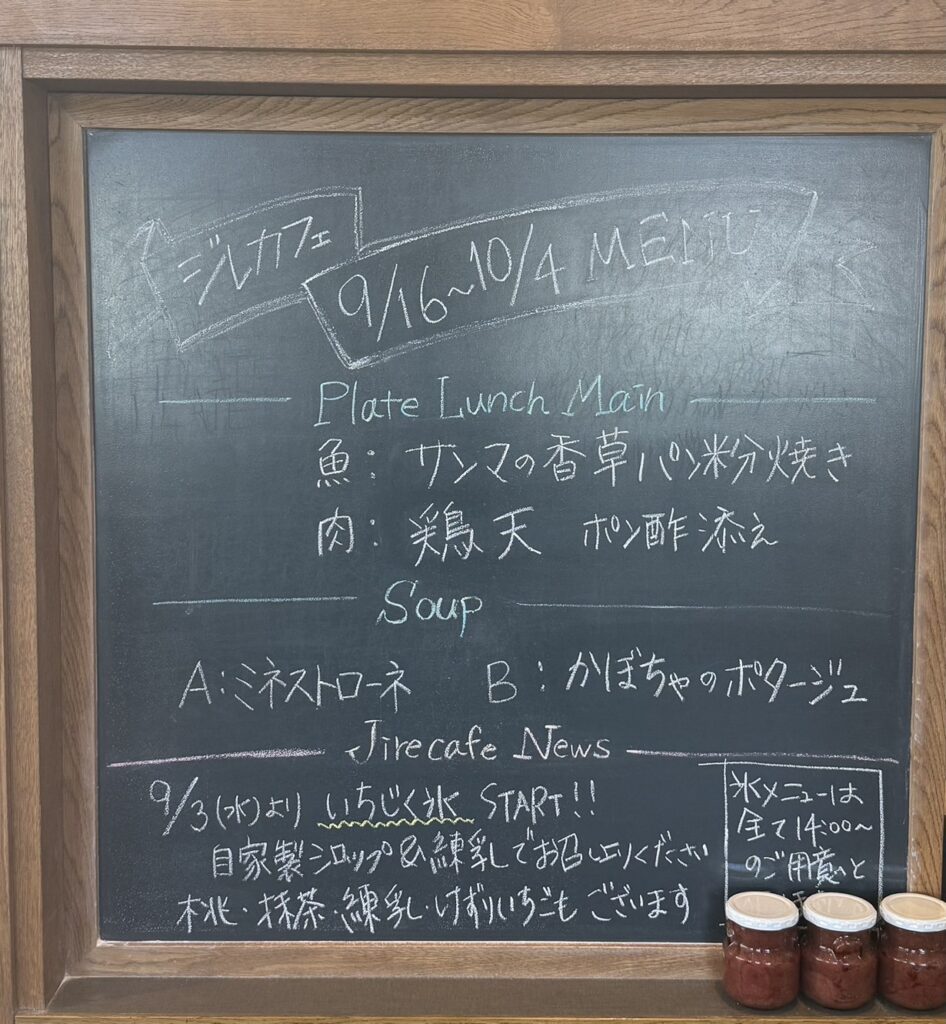 ジルカフェ
9/16~10/4 MENU
Plate Lunch Main
魚: サンマの香草パン粉焼き
肉: 鶏天 ポン酢添え
Soup
A:ミネストローネ B:かぼちゃのポタージュ
Jirecafe News
9/3(水)より いちじく氷 START!!
自家製シロップ&練乳でお召し上りください
桃・抹茶・練乳・けずりいちごもございます
氷メニューは
全て14:00~
のご用意と